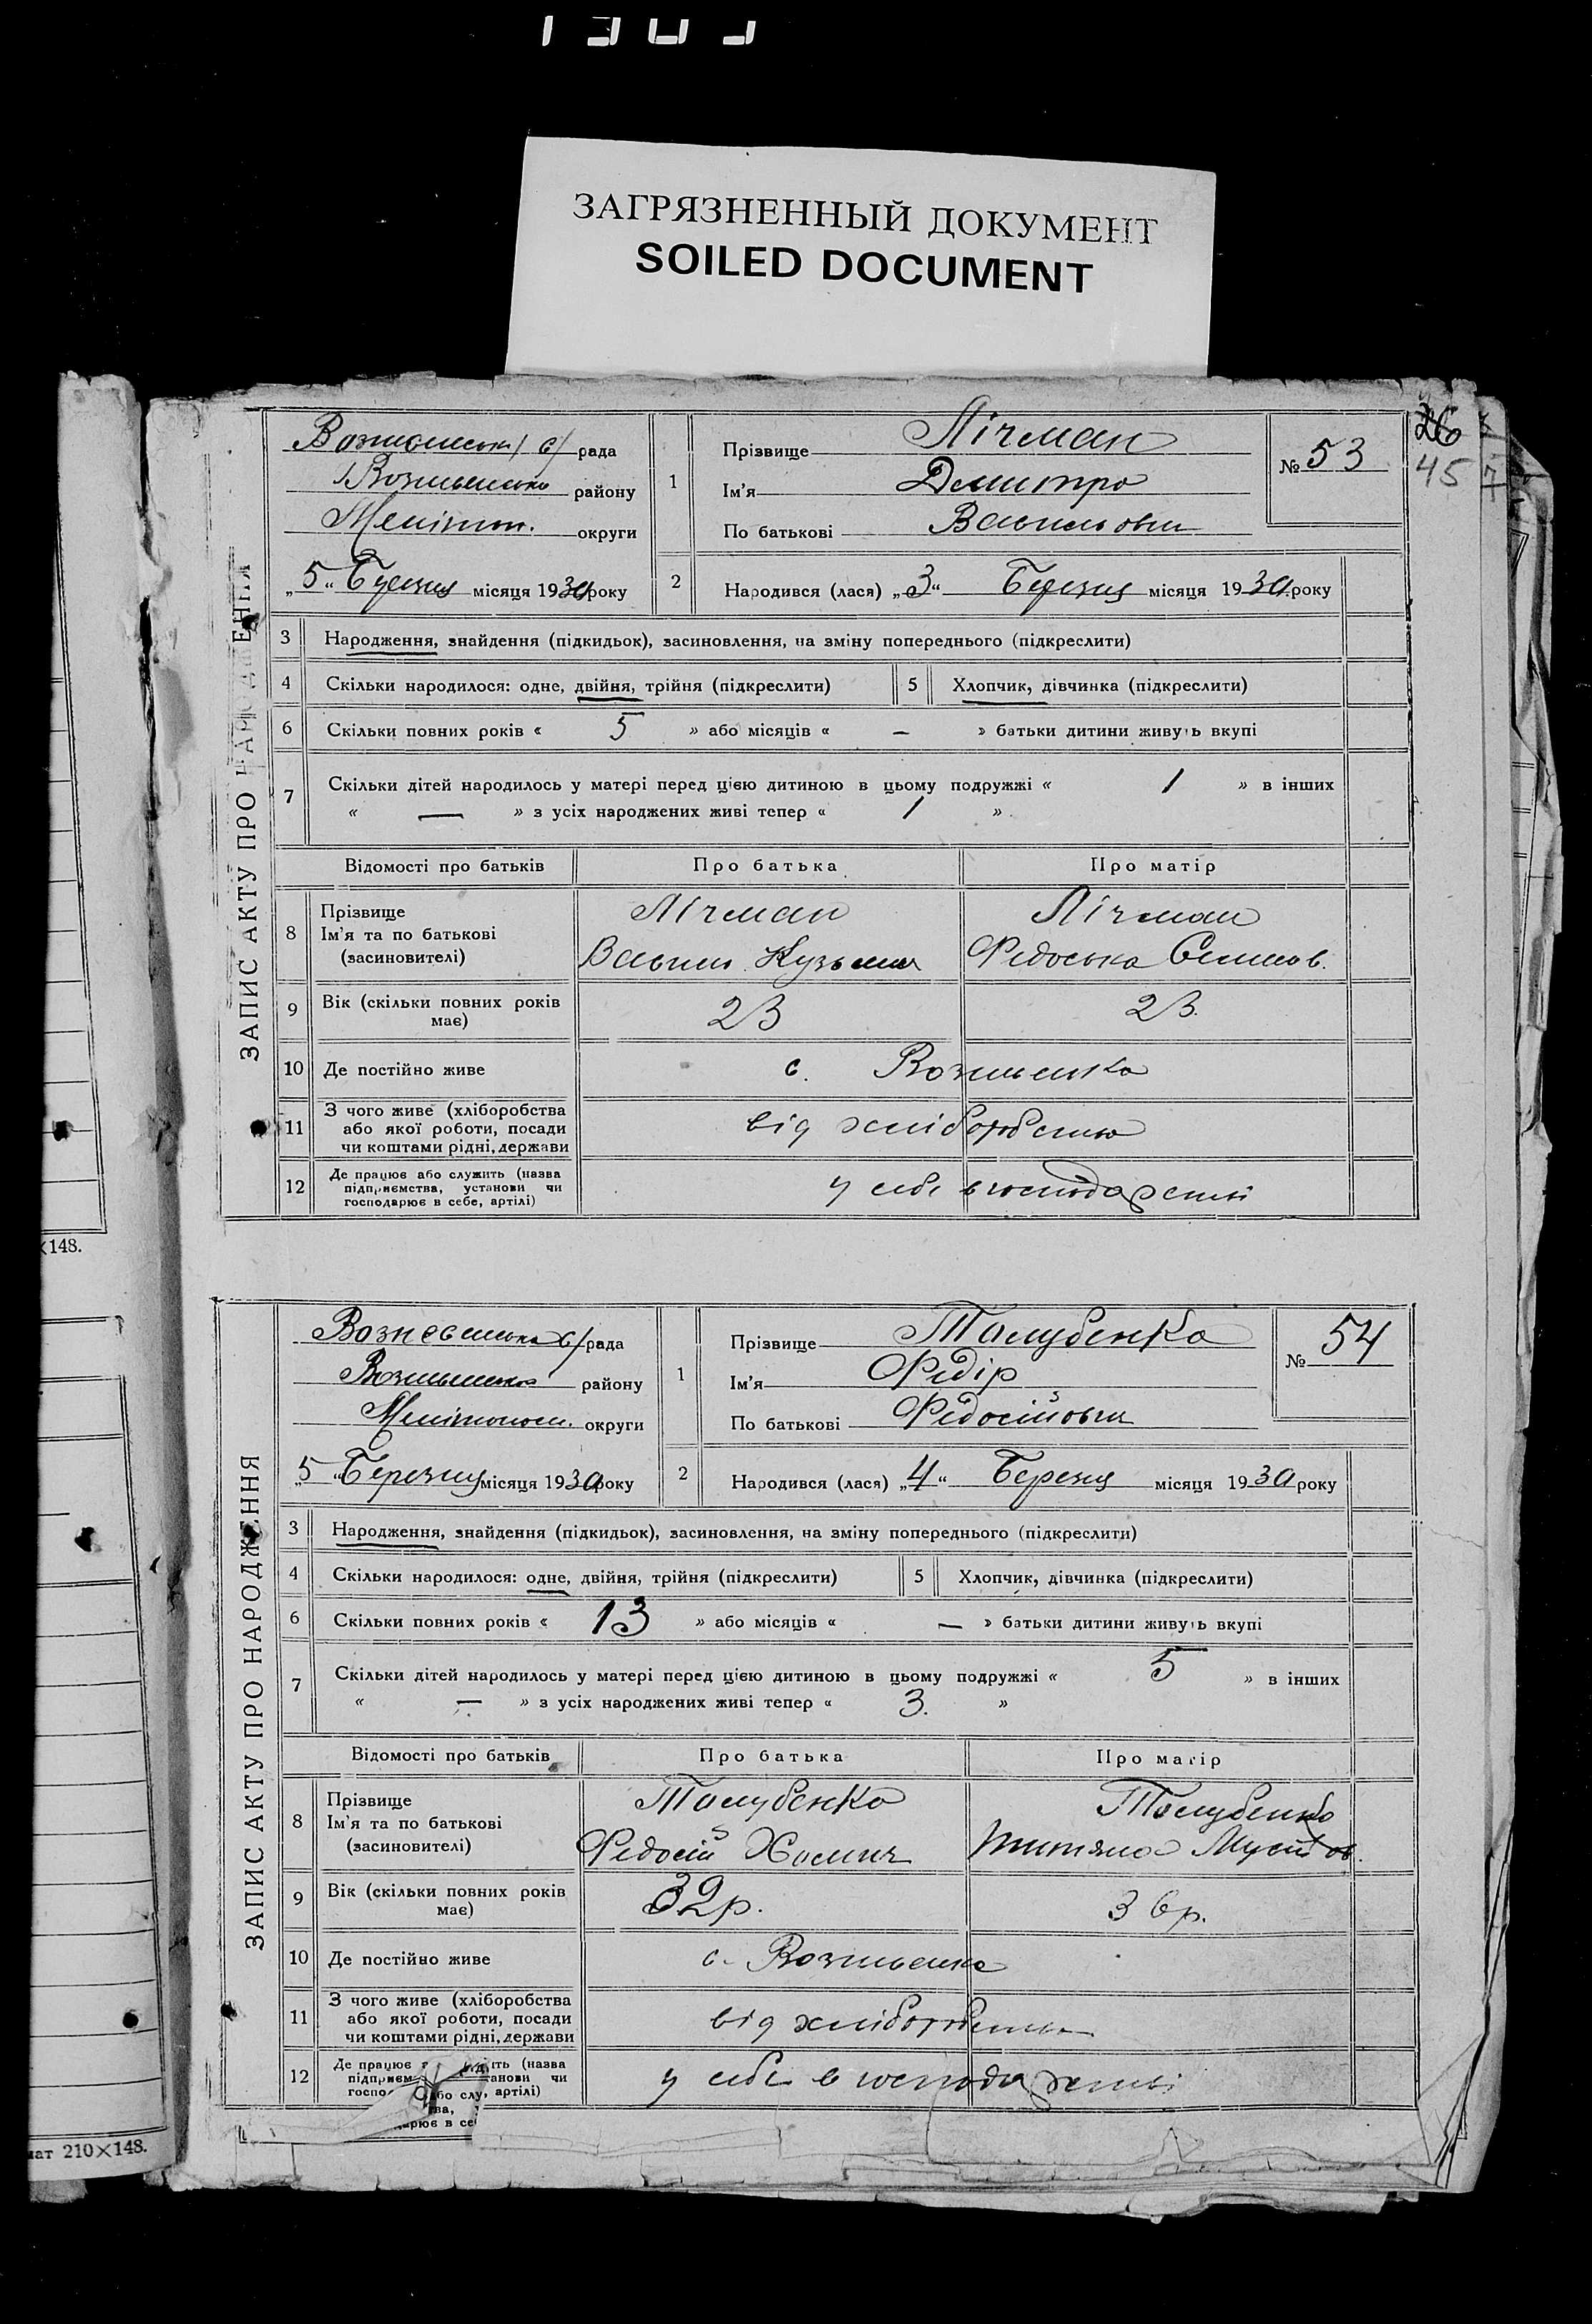 ЗАГРЯЗНЕННЫЙ ДОКУМЕНТ
SOILED DOCUMENT
26
45
ЗАПИС АКТУ ПРО НАРОДЖЕННЯ
с/ рада
району
Мелітоп. округи
„5“ Березня місяця 1930 року
1
Прізвище Лічман
Ім'я Дмитро
По батькові Васильович
№ 53
2
Народився (лася) „3“ Березня місяця 1930 року
3 Народження, знайдення (підкидьок), засиновлення, на зміну попереднього (підкреслити)
4 Скільки народилося: одне, двійня, трійня (підкреслити)
5 Хлопчик, дівчинка (підкреслити)
6 Скільки повних років « 5 » або місяців « — » батьки дитини живуть вкупі
7 Скільки дітей народилось у матері перед цією дитиною в цьому подружжі « 1 » в інших
« — » з усіх народжених живі тепер « 1 »
Відомості про батьків Про батька Про матір
8 Прізвище
Ім'я та по батькові
(засиновителі)
Лічман
Василь Кузьмич
Лічман
Федоська
9 Вік (скільки повних років
має)
23
23.
10 Де постійно живе
с. Вознесенка
11 З чого живе (хліборобства
або якої роботи, посади
чи коштами рідні, держави
від хліборобства
12 Де працює або служить (назва
підприємства, установи чи
господарює в себе, артілі)
у себе в господарстві
ЗАПИС АКТУ ПРО НАРОДЖЕННЯ
Вознесенська с/рада
району
округи
„5“ Березня місяця 1930 року
1
Прізвище Толубенко
Ім'я Федір
По батькові Федосійович
№ 54
2
Народився (лася) „4“ Березня місяця 1930 року
3 Народження, знайдення (підкидьок), засиновлення, на зміну попереднього (підкреслити)
4 Скільки народилося: одне, двійня, трійня (підкреслити)
5 Хлопчик, дівчинка (підкреслити)
6 Скільки повних років « 13 » або місяців « — » батьки дитини живуть вкупі
7 Скільки дітей народилось у матері перед цією дитиною в цьому подружжі « 5 » в інших
« — » з усіх народжених живі тепер « 3. »
Відомості про батьків Про батька Про матір
8 Прізвище
Ім'я та по батькові
(засиновителі)
Толубенко
Федосій Хомич
Толубенко
9 Вік (скільки повних років
має)
32р.
36р.
10 Де постійно живе
с. Вознесенка
11 З чого живе (хліборобства
або якої роботи, посади
чи коштами рідні, держави
від хліборобства
12 Де працює (назва
чи
артілі)
у себе в господарстві
×148.
210×148.